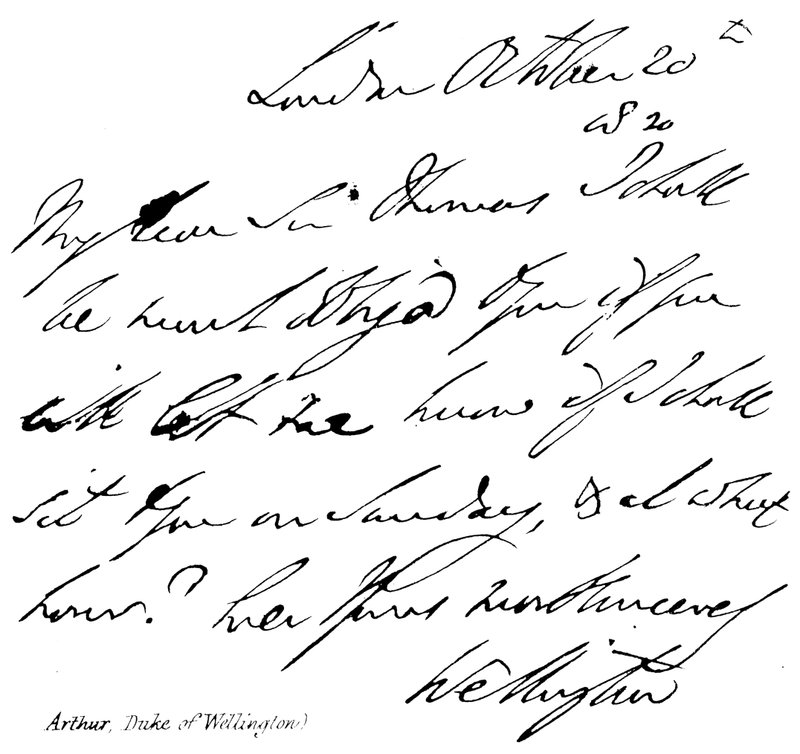 London October 20th
1820
My dear Sir Thomas I shall
be much obliged to You if you
will let me know if I shall
sit to You on Sunday, & at what
hour? Ever Yours most sincerely
Wellington
Arthur, Duke of Wellington)